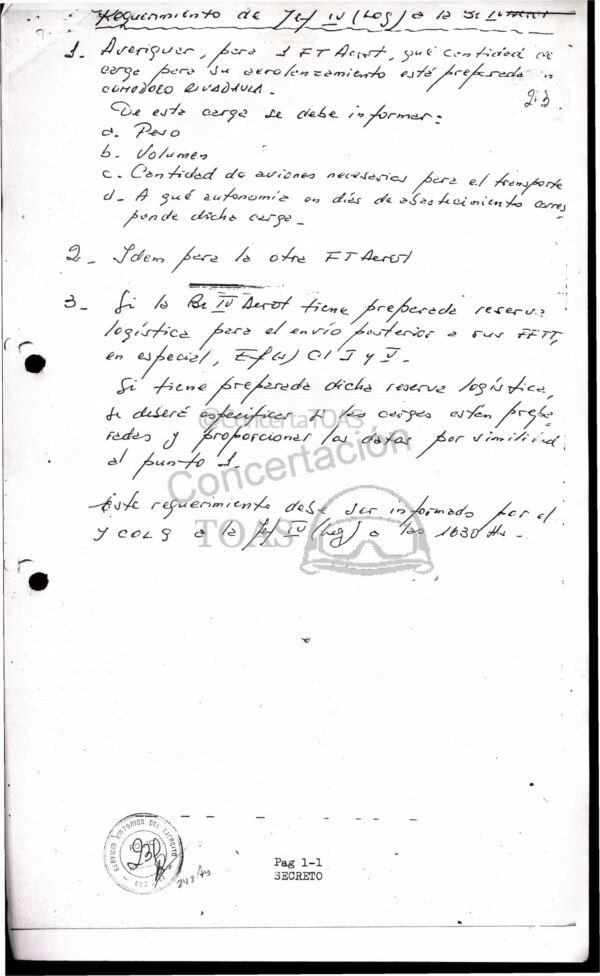 Requerimiento de Jef IV (Log) a la Br IV Aerot
1. Averiguar, para 1 FT Aerot, qué cantidad de
carga para su aerolanzamiento está preparada en
COMODORO RIVADAVIA.
De esta carga se debe informar:
a. Peso
b. Volumen
c. Cantidad de aviones necesarios para el transporte
d. A qué autonomía en días de abastecimiento corres
ponde dicha carga.
2. Idem para la otra FT Aerot
3. Si la Br IV Aerot tiene preparada reserva
logística para el envío posterior a sus FFTT,
en especial, Ef(s) Cl I y V.
Si tiene preparada dicha reserva logística,
se deberá especificar si las cargas están prepa
radas y proporcionar los datos por similitud
al punto 1.
Este requerimiento debe ser informado por el
a la Jef IV (Log) a las 1630 Hs.
@ConcertaTOAS
Concertación
TOAS
SERVICIO HISTORICO DEL EJERCITO
Pag 1-1
SECRETO